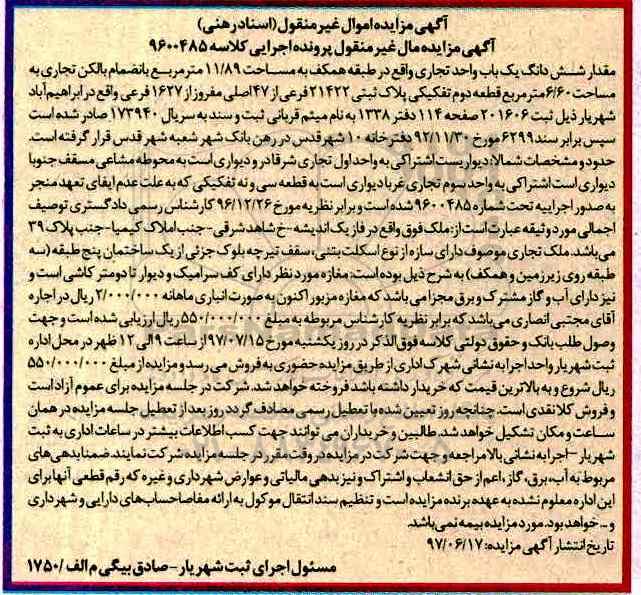 آگهی مزایده اموال غیر منقول (اسناد رهنی)
آگهی مزایده مال غیر منقول پرونده اجرایی کلاسه ۹۶۰۰۴۸۵
مقدار شش دانگ یک باب واحد تجاری واقع در طبقه همکف به مساحت ۱۱/۸۹ متر مربع بانضمام بالکن تجاری به
مساحت ۶/۶۰ متر مربع قطعه دوم تفکیکی پلاک ثبتی ۲۱۴۲۲ فرعی از ۴۷ اصلی مفروز از ۱۶۲۷ فرعی واقع در ابراهیم آباد
شهریار ذیل ثبت ۲۰۱۶۰۶ صفحه ۱۱۴ دفتر ۱۳۳۸ به نام میثم قربانی ثبت و سند به سریال ۱۷۳۹۴۰ صادر شده است
سپس برابر سند ۶۲۹۹ مورخ ۹۲/۱۱/۳۰ دفترخانه ۱۰ شهر قدس در رهن بانک شهر شعبه شهر قدس قرار گرفته است.
حدود و مشخصات شمالا: دیواریست اشتراکی به واحد اول تجاری شرقا در و دیواری است به محوطه مشاعی مسقف جنوبا
دیواری است اشتراکی به واحد سوم تجاری غربا دیواری است به قطعه سی و نه تفکیکی که به علت عدم ایفای تعهد منجر
به صدور اجراییه تحت شماره ۹۶۰۰۴۸۵ شده است و برابر نظریه مورخ ۹۶/۱۲/۲۶ کارشناس رسمی دادگستری توصیف
اجمالی مورد وثیقه عبارت است از: ملک فوق واقع در فاز یک اندیشه-خ شاهد شرقی-جنب املاک کیمیا-جنب پلاک ۳۹
می باشد. ملک تجاری موصوف دارای سازه از نوع اسکلت بتنی، سقف تیرچه بلوک جزئی از یک ساختمان پنج طبقه (سه
طبقه روی زیرزمین و همکف) به شرح ذیل بوده است: مغازه مورد نظر دارای کف سرامیک و دیوار تا دو متر کاشی است و
نیز دارای آب و گاز مشترک و برق مجزا می باشد که مغازه مزبور اکنون به صورت انباری ماهانه ۲/۰۰۰/۰۰۰ ریال در اجاره
آقای مجتبی انصاری می باشد که برابر نظریه کارشناس مربوطه به مبلغ ۵۵۰/۰۰۰/۰۰۰ ریال ارزیابی شده است و جهت
وصول طلب بانک و حقوق دولتی کلاسه فوق الذکر در روز یکشنبه مورخ ۹۷/۰۷/۱۵ از ساعت ۹ الی ۱۲ ظهر در محل اداره
ثبت شهریار واحد اجرا به نشانی شهرک اداری از طریق مزایده حضوری به فروش می رسد و مزایده از مبلغ ۵۵۰/۰۰۰/۰۰۰
ریال شروع و به بالاترین قیمت که خریدار داشته باشد فروخته خواهد شد. شرکت در جلسه مزایده برای عموم آزاد است
و فروش کلا نقدی است. چنانچه روز تعیین شده با تعطیل رسمی مصادف گردد روز بعد از تعطیل جلسه مزایده در همان
ساعت و مکان تشکیل خواهد شد. طالبین و خریداران می توانند جهت کسب اطلاعات بیشتر در ساعات اداری به ثبت
شهریار -اجرا به نشانی بالا مراجعه و جهت شرکت در مزایده در وقت مقرر در جلسه مزایده شرکت نمایند. ضمنا بدهی های
مربوط به آب، برق، گاز، اعم از حق انشعاب و اشتراک و نیز بدهی مالیاتی و عوارض شهرداری و غیره که رقم قطعی آنها برای
این اداره معلوم نشده به عهده برنده مزایده است و تنظیم سند انتقال موکول به ارائه مفاصا حساب های دارایی و شهرداری
و ... خواهد بود. مورد مزایده بیمه نمی باشد.
تاریخ انتشار آگهی مزایده: ۹۷/۰۶/۱۷
مسئول اجرای ثبت شهریار-صادق بیگی م الف /۱۷۵۰